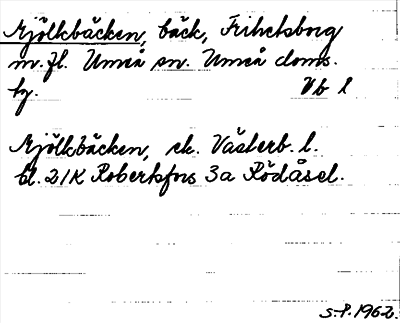 Mjölkbäcken, bäck, Frihetsborg
m.fl. Umeå sn. Umeå doms.
hg. Vb l
Mjölkbäcken, ek. Västerb. l.
bl. 21K Robertsfors 3a Rödåsel.
S.P. 1962.